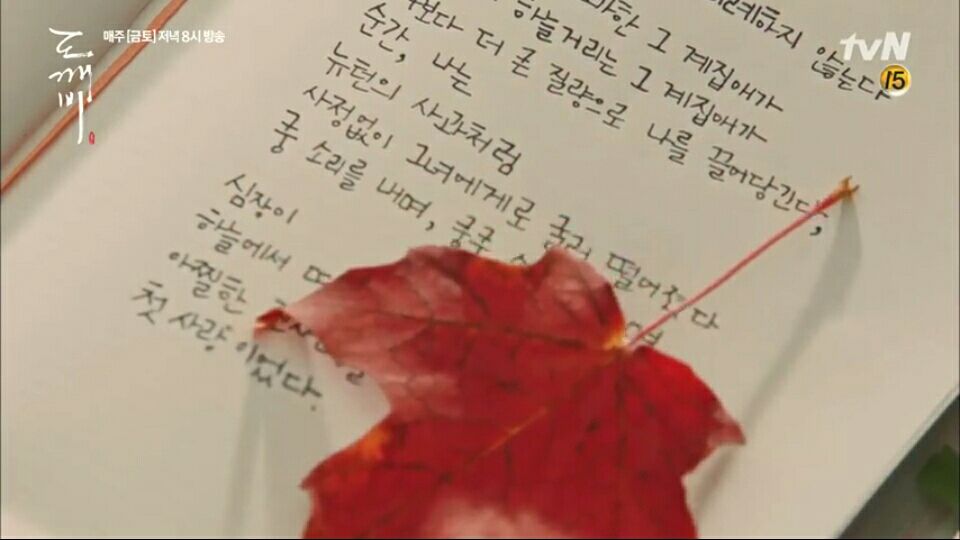 도깨비
매주 [금토] 저녁 8시 방송
tvN
15
않는다
그 계집애가
하늘거리는 그 계집애가
더 큰 질량으로 나를 끌어당긴다,
순간, 나는
뉴턴의 사과처럼
사정없이 그녀에게로 굴러 떨어졌다
쿵 소리를 내며, 쿵쿵
심장이
하늘에서
아찔한
첫 사랑이었다.